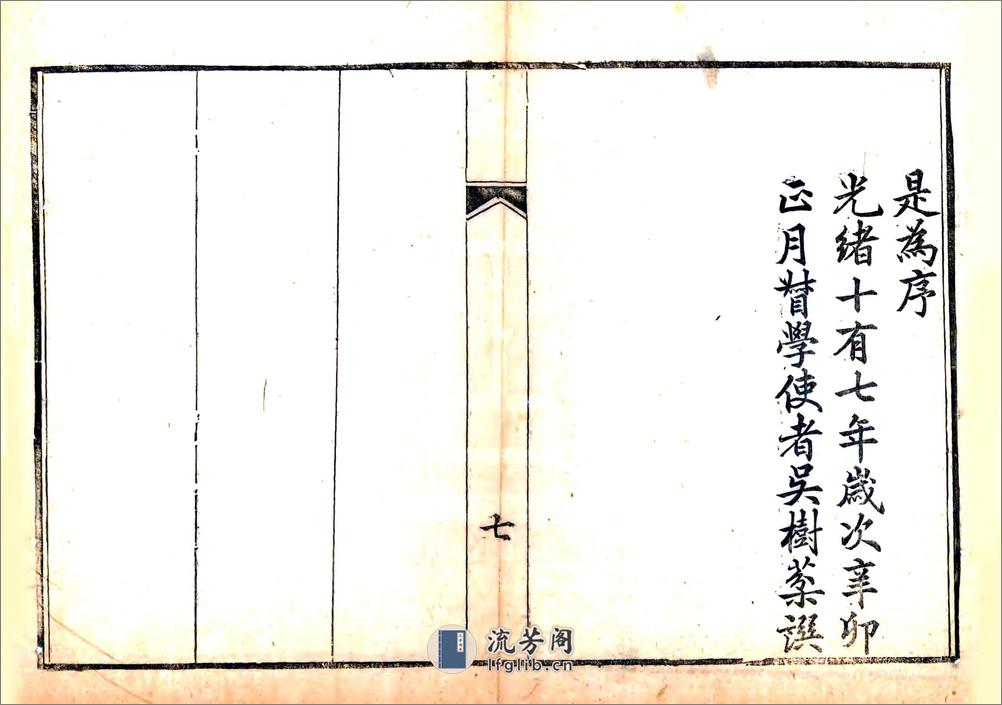 是為序
光緒十有七年歲次辛卯
正月督學使者吳樹棻譔
七
流芳阁
lfglib.cn